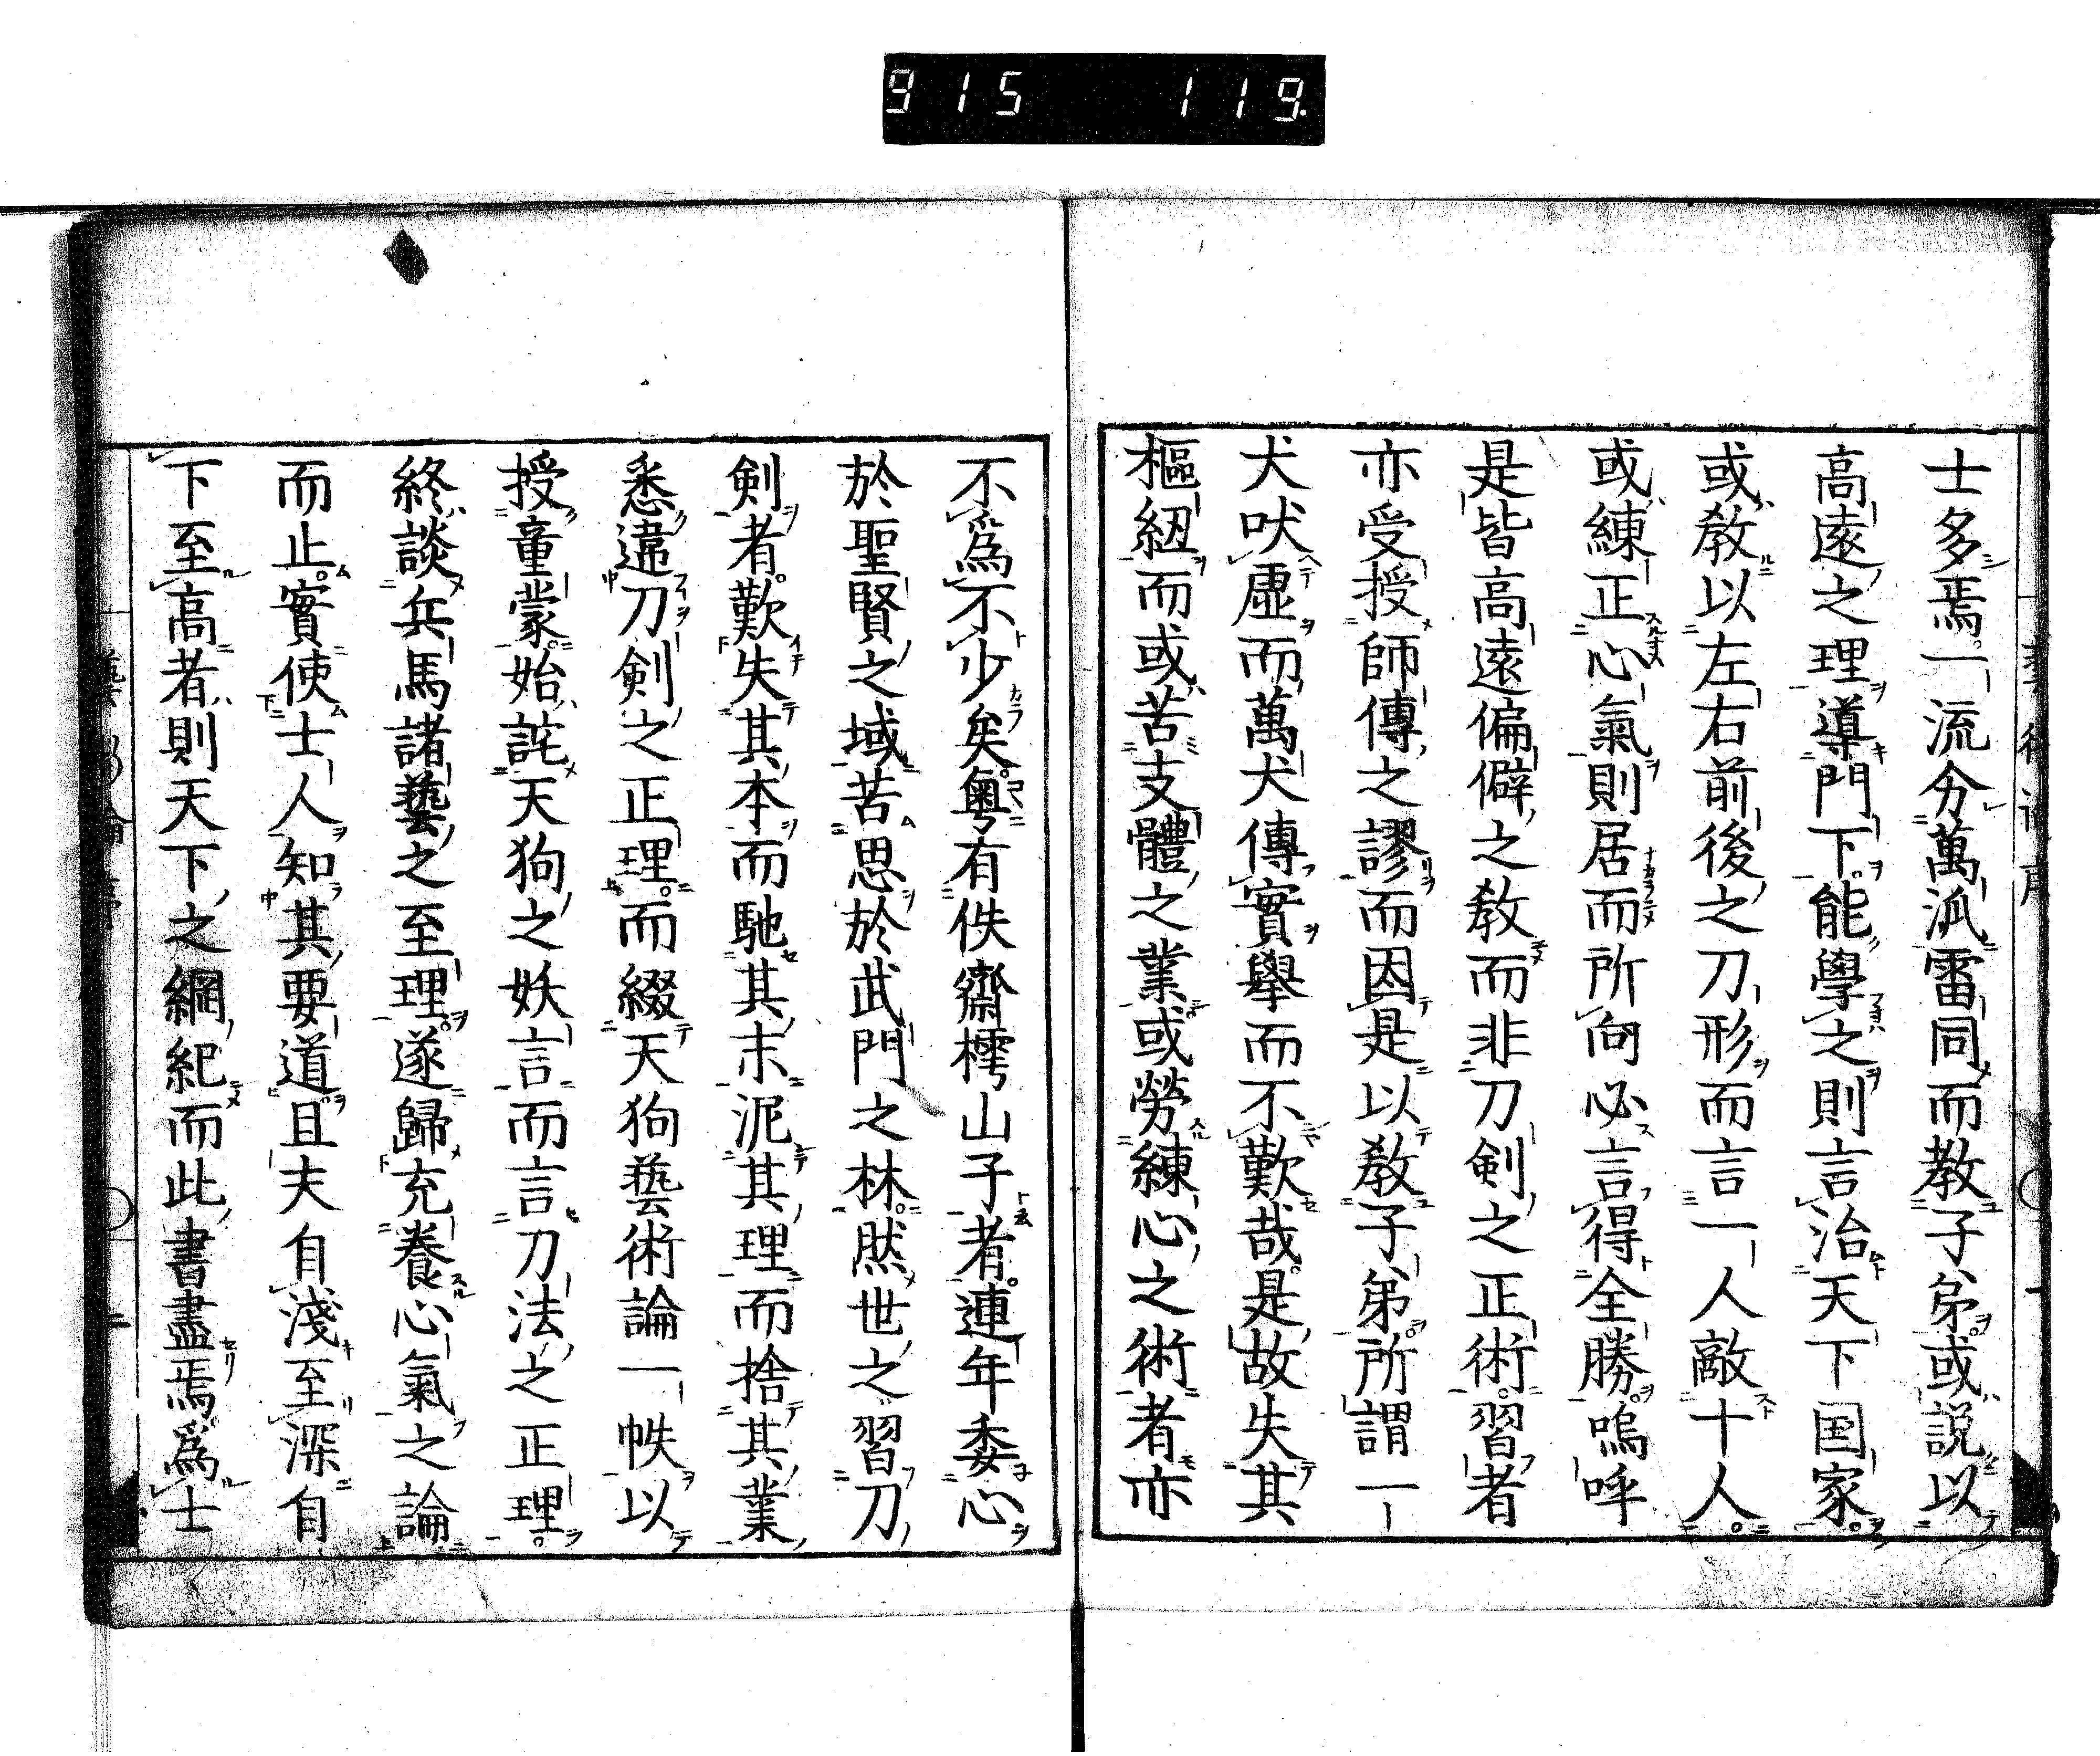 915 119.
士多焉。一流分萬泒雷同而教子弟。或説以
高遠之理導門下。能學之則言治天下国家。
或教以左右前後之刀形而言一人敵十人。
或練正心氣則居而所向必言得全勝。嗚呼
是皆高遠偏僻之教而非刀剣之正術。習者
亦受授師傳之謬而因是以教子弟。所謂一
犬吠虛而萬犬傳實舉而不歎哉。是故失其
樞紐而或苦支體之業。或勞練心之術者亦
不爲不少矣。粤有佚齋樗山子者。連年委心
於聖賢之域苦思於武門之林。然世之習刀
剣者。歎失其本而馳其末泥其理而捨其業
悉違刀剣之正理。而綴天狗藝術論一帙以
授童蒙。始託天狗之妖言而言刀法之正理。
終談兵馬諸藝之至理。遂歸充養心氣之論
而止。實使士人知其要道。且夫自淺至深自
下至高者則天下之綱紀而此書盡焉。爲士